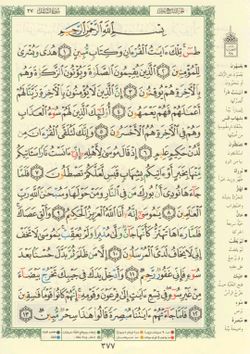 بِسْمِ اللَّهِ الرَّحْمَٰنِ الرَّحِيمِ
طسٓ تِلْكَ ءَايَٰتُ ٱلْقُرْءَانِ وَكِتَابٍ مُّبِينٍ ١ هُدًى وَبُشْرَىٰ
لِلْمُؤْمِنِينَ ٢ ٱلَّذِينَ يُقِيمُونَ ٱلصَّلَوٰةَ وَيُؤْتُونَ ٱلزَّكَوٰةَ وَهُم
بِٱلْءَاخِرَةِ هُمْ يُوقِنُونَ ٣ إِنَّ ٱلَّذِينَ لَا يُؤْمِنُونَ بِٱلْءَاخِرَةِ زَيَّنَّا لَهُمْ
أَعْمَٰلَهُمْ فَهُمْ يَعْمَهُونَ ٤ أُو۟لَٰٓئِكَ ٱلَّذِينَ لَهُمْ سُوٓءُ ٱلْعَذَابِ
وَهُمْ فِى ٱلْءَاخِرَةِ هُمُ ٱلْأَخْسَرُونَ ٥ وَإِنَّكَ لَتُلَقَّى ٱلْقُرْءَانَ مِن
لَّدُنْ حَكِيمٍ عَلِيمٍ ٦ إِذْ قَالَ مُوسَىٰ لِأَهْلِهِۦٓ إِنِّىٓ ءَانَسْتُ نَارًا سَـَٔاتِيكُم
مِّنْهَا بِخَبَرٍ أَوْ ءَاتِيكُم بِشِهَابٍ قَبَسٍ لَّعَلَّكُمْ تَصْطَلُونَ ٧ فَلَمَّا
جَآءَهَا نُودِىَ أَنۢ بُورِكَ مَن فِى ٱلنَّارِ وَمَنْ حَوْلَهَا وَسُبْحَٰنَ ٱللَّهِ رَبِّ
ٱلْعَٰلَمِينَ ٨ يَٰمُوسَىٰٓ إِنَّهُۥٓ أَنَا ٱللَّهُ ٱلْعَزِيزُ ٱلْحَكِيمُ ٩ وَأَلْقِ عَصَاكَ
فَلَمَّا رَءَاهَا تَهْتَزُّ كَأَنَّهَا جَآنٌّ وَلَّىٰ مُدْبِرًا وَلَمْ يُعَقِّبْ يَٰمُوسَىٰ لَا تَخَفْ
إِنِّى لَا يَخَافُ لَدَىَّ ٱلْمُرْسَلُونَ ١٠ إِلَّا مَن ظَلَمَ ثُمَّ بَدَّلَ حُسْنًۢا بَعْدَ
سُوٓءٍ فَإِنِّى غَفُورٌ رَّحِيمٌ ١١ وَأَدْخِلْ يَدَكَ فِى جَيْبِكَ تَخْرُجْ بَيْضَآءَ
مِنْ غَيْرِ سُوٓءٍ فِى تِسْعِ ءَايَٰتٍ إِلَىٰ فِرْعَوْنَ وَقَوْمِهِۦٓ إِنَّهُمْ كَانُوا۟ قَوْمًا فَٰسِقِينَ
١٢ فَلَمَّا جَآءَتْهُمْ ءَايَٰتُنَا مُبْصِرَةً قَالُوا۟ هَٰذَا سِحْرٌ مُّبِينٌ ١٣
٣٧٧